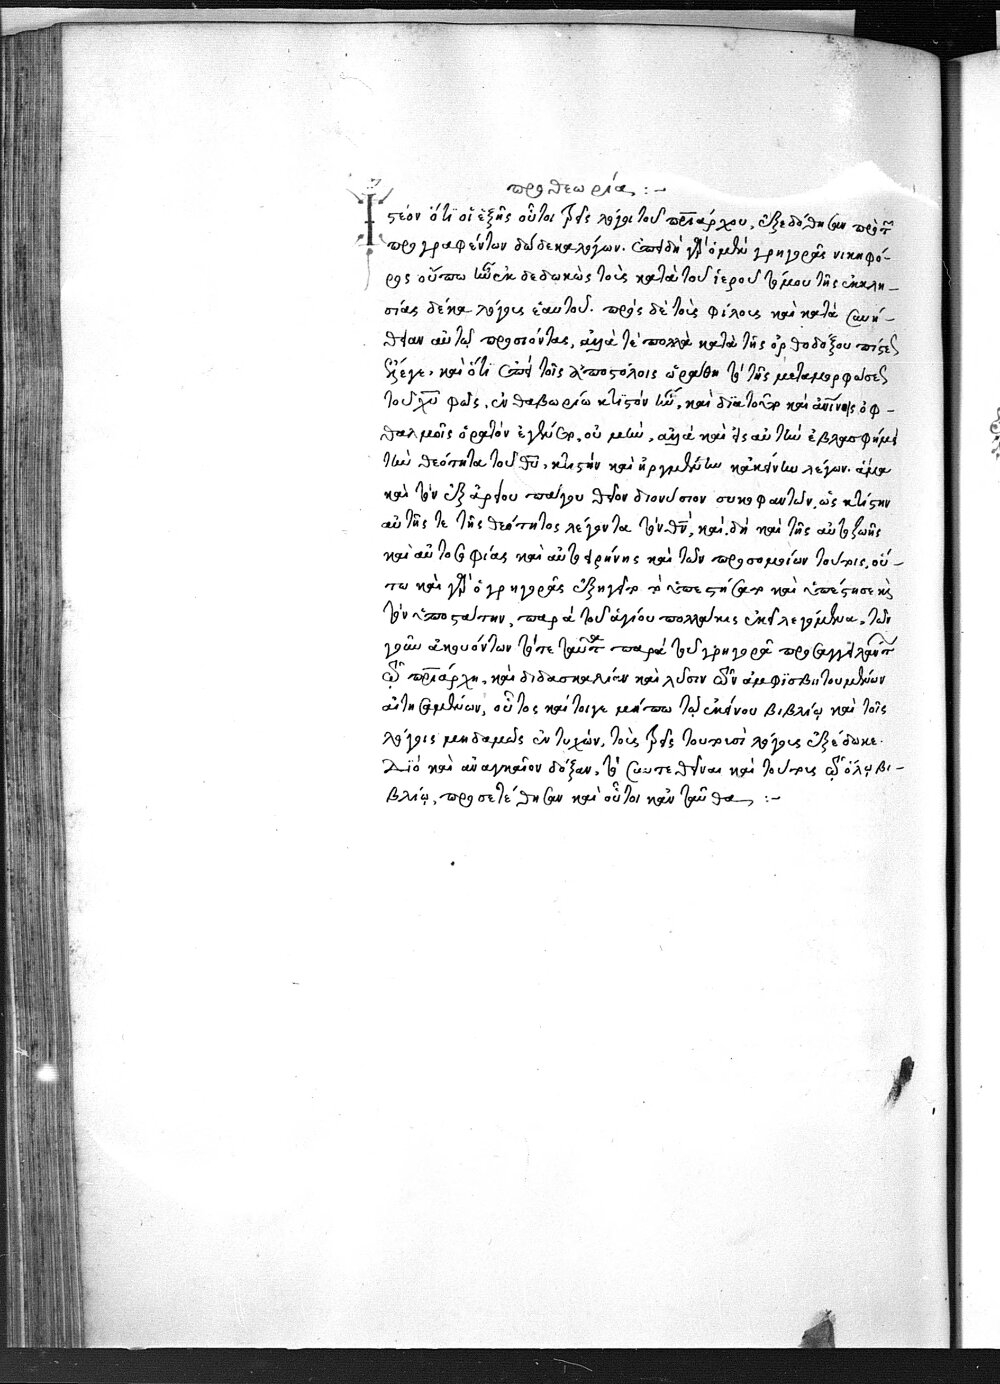 προθεωρία :-
Ἰστέον ὅτι οἱ ἑξῆς οὗτοι λόγοι τοῦ πριάρχου, ἐξεδόθησαν πρὸ τῶν
προγραφέντων δώδεκα λόγων. ἐπειδὴ γὰρ ὁ μὲν γρηγορᾶς νικηφό-
ρος οὔπω ἦν ἐκδεδωκὼς τοὺς κατὰ τοῦ ἱεροῦ τόμου τῆς ἐκκλη-
σίας δέκα λόγους ἑαυτοῦ. πρὸς δὲ τοὺς φίλους καὶ κατὰ συνή-
θειαν αὐτῷ προσιόντας, ἄλλα τὲ πολλὰ κατὰ τῆς ὀρθοδόξου πίστεως
ἔλεγε, καὶ ὅτι τοῖς ἀποστόλοις ὁραθὲν τῆς μεταμορφώσεως
τοῦ χυ φῶς, ἐν θαβωρίῳ κτιστὸν ἦν, καὶ διατοῦτο καὶ ὀφ-
θαλμοῖς ὁρατὸν ἐγένετο, οὐ μὴν, ἀλλὰ καὶ εἰς αὐτὴν ἐβλασφήμει
τὴν θεότητα τοῦ θυ, κτιστὴν καὶ ἠργμένην κἀκείνην λέγων. ἅμα
καὶ τὸν ἐξ ἀρείου πάγου θεῖον διονύσιον συκοφαντῶν, ὡς κτίστην
αὐτῆς τε τῆς θεότητος λέγοντα τὸν θν, καὶ δὴ καὶ τῆς αὐτοζωῆς
καὶ αὐτοσοφίας καὶ αὐτοειρήνης καὶ τῶν προσομοίων τούτοις, οὕ-
τω καὶ γὰρ ὁ γρηγορᾶς ἐξηγεῖτο τὸ ὑπέστησε καὶ ὑπέστησε καὶ
τὸν ὑποστάτην, παρὰ τοῦ ἁγίου πολλάκις ἐκεῖ λεγόμενα. τῶν
γοῦν ἀκουόντων τότε ταῦτα παρὰ τοῦ γρηγορᾶ προσαγγειλάντων
τῷ πριάρχῃ, καὶ διδασκαλίαν καὶ λύσιν τῶν ἀμφισβητουμένων
αἰτησαμένων, οὗτος καίτοιγε μήπω τῷ ἐκείνου βιβλίῳ καὶ τοῖς
λόγοις μηδαμῶς ἐντυχών, τοὺς τουτουσὶ λόγους ἐξέδωκε.
Διὸ καὶ ἀναγκαῖον δόξαν, τὸ συντεθῆναι καὶ τούτους τῷ ὅλῳ βι-
βλίῳ, προσετέθησαν καὶ οὗτοι κἀνταῦθα :-